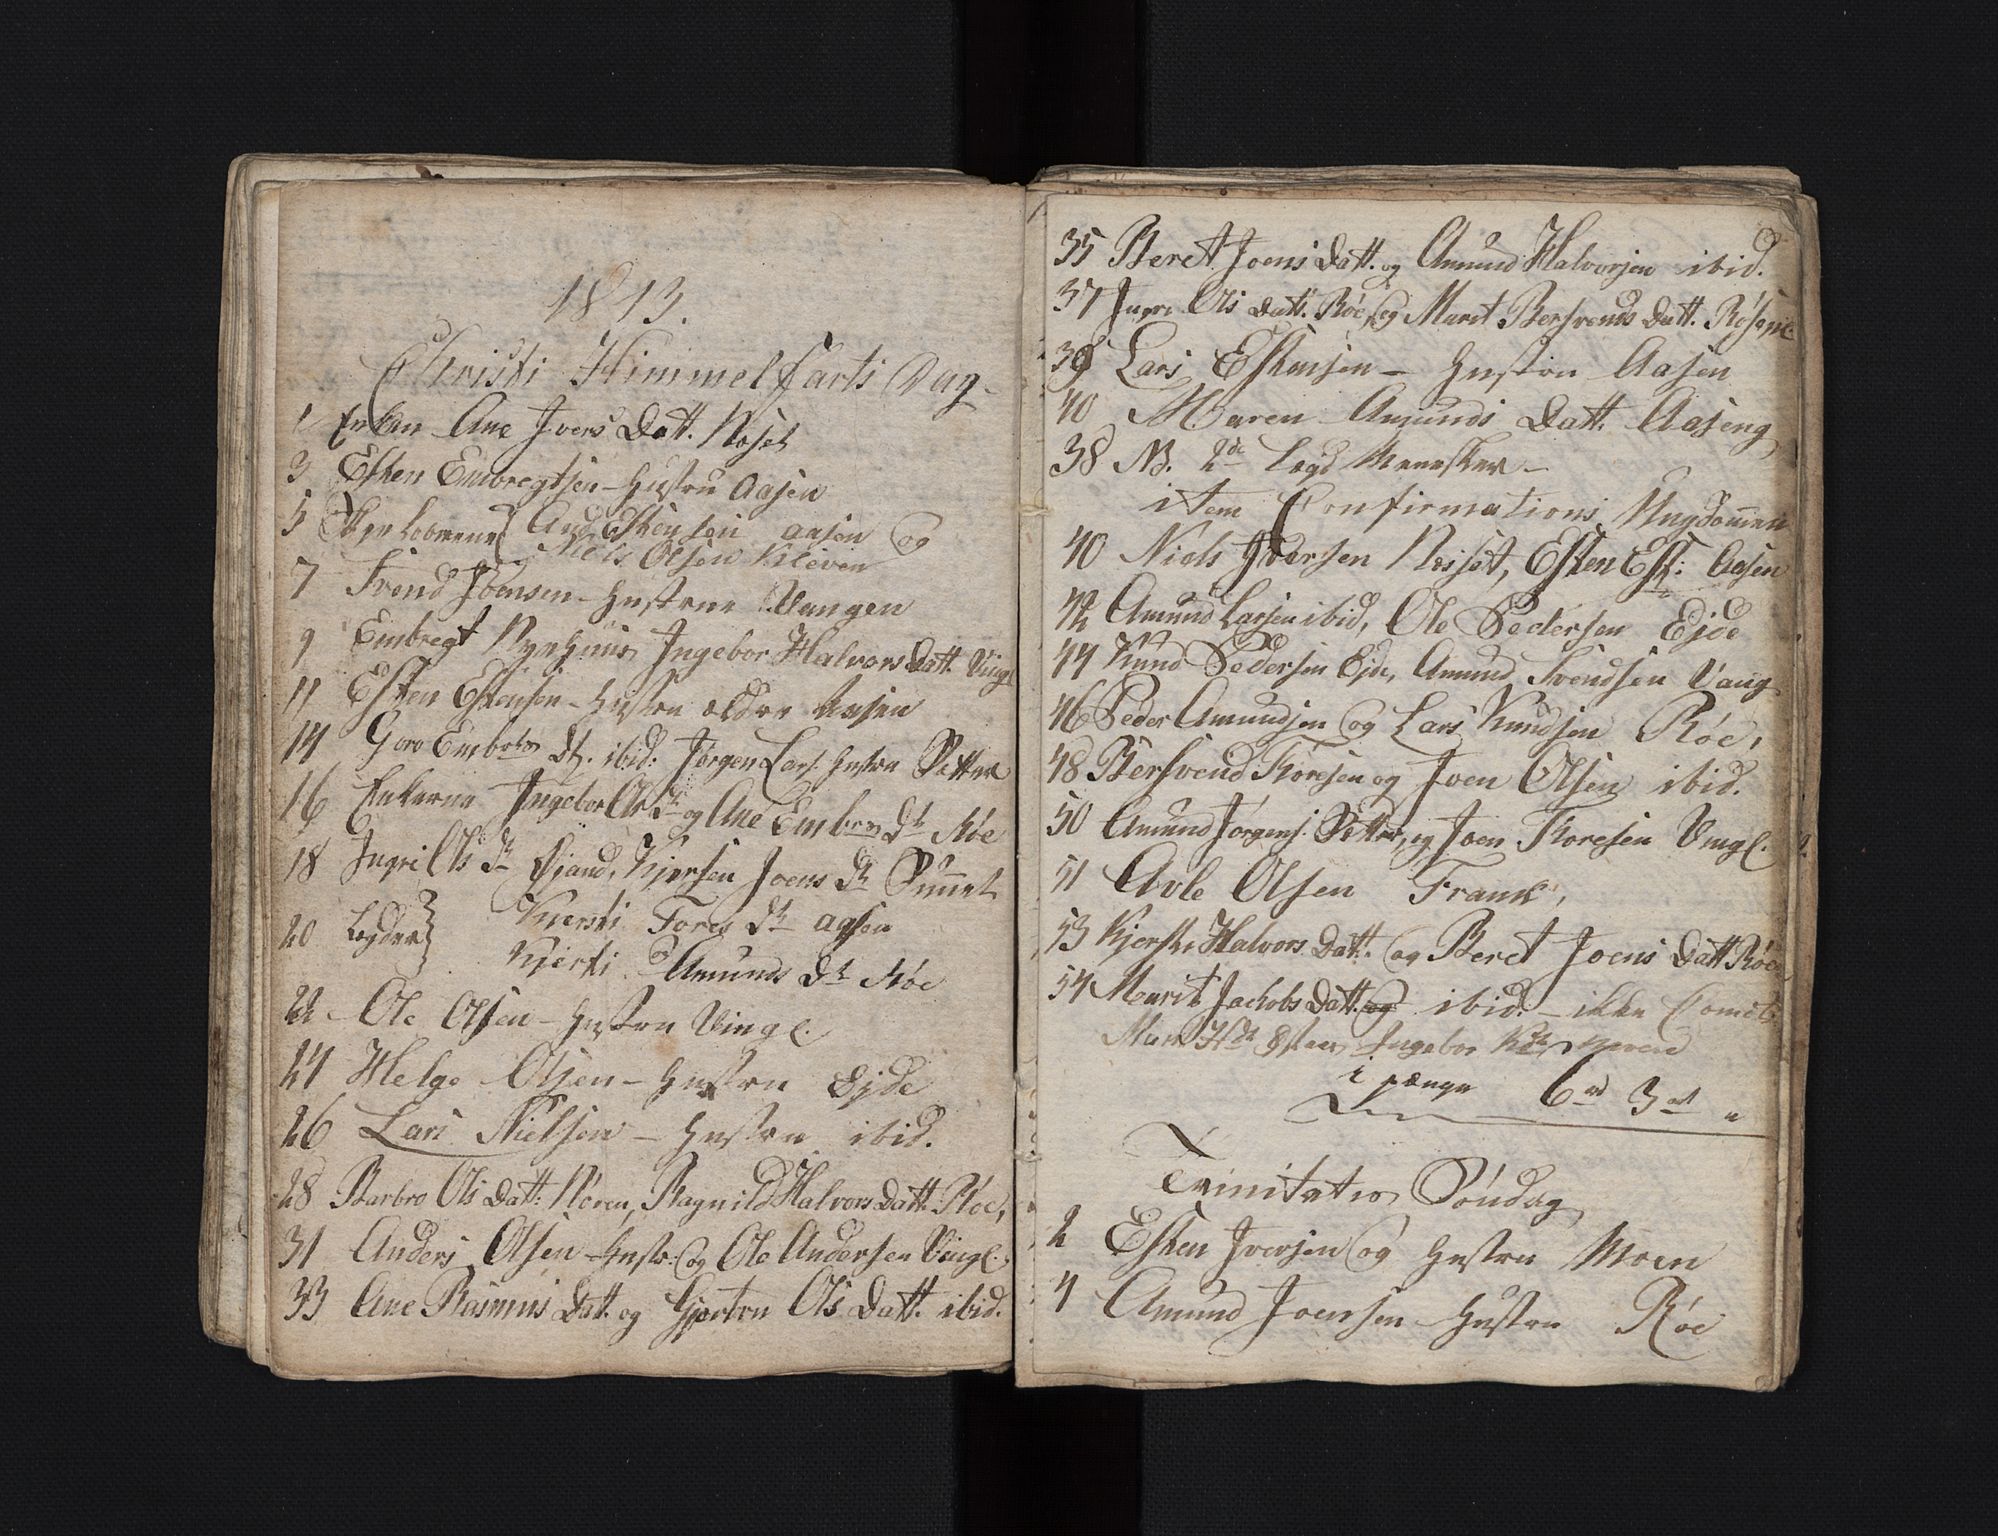 1813.
Christi Himmelfarts Dag
1 Enken Ane Ivers Datt. Noset
3 Esten Embregtsen - Hustru Aasen
5 And Estensen aasen og
Niels Olsen Kleven
7 Svend Joensen - Hustrue Vangen
9 Embregt Nyehuus, Ingebor Halvors Datt. Vingl
11 Esten Estensen - Hustru ældre Aasen
14 Goro Dtr. ibid: Jørgen Lars: Hustru Sætter
16 Enkerne Ingebor og Ane Dtr Røe
18 Ingri Ols Dr Kjersten Joens Dtr
20 Legder Kjersti Tores Dtr aasen
Kjersti Amunds Dtr Røe
22 - Ole Olsen - Hustru Vingl.
24 Helge Olsen - Hustru Ejde
26 Lars Nielsen - Hustru ibid.
28 Barbro Ols Datt: Noren, Ragnild Halvors Datt. Røe,
31 Anders Olsen - Hustr: og Ole Andersen Vingl.
33 Ane Rasmus Datt. og Gjertru Ols Datt. ibid.
35 Beret Joens Datt. og Amund Halvorsen ibid.
37 Ingri Ols Datt. Røe, og Marit Bersvends Datt.
39 Lars Estensen - Hustru Aasen
40 Maren Amunds Datt. Aaseng
38 NB. 2de Legd Mennesker -
item Confirmations Ungdommen
40 Niels Iversen Nosset, Esten Est: Aasen
42 Amund Larsen ibid, Ole Pedersen Ejde
44 Knud Pedersen Ejde, Amund Svendsen Vang
46 Peder Amundsen og Lars Knudsen Røe,
48 Bersvend Toresen og Joen Olsen ibid.
50 Amund Jørgens. Sætter, og Joen Toresen Vingl.
51 Avle Olsen Frank,
53 Kjersti Halvors Datt. og Beret Joens Datt Røe
54 Marit Jachobs Datt. og ibid. - ikke Comet
Ingebor
i penge 6 rd 3 ort "
Trinitatis Søndag
2 Esten Iversen og Hustru Moen
4 Amund Joensen Hustru Røe